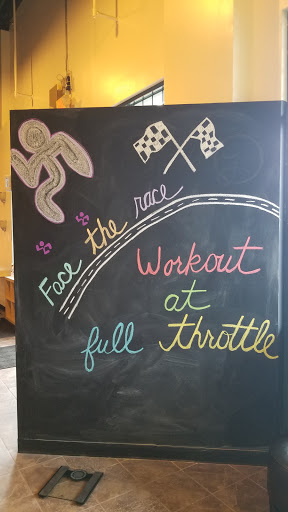 Face the race
Workout
at
full throttle